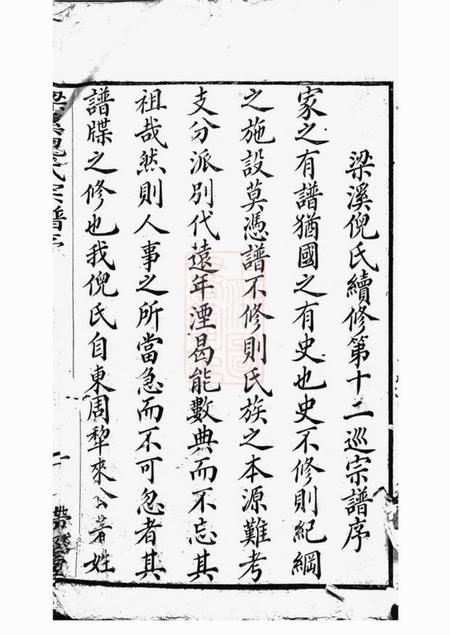 梁溪倪氏續修第十二巡宗譜序
家之有譜猶國之有史也史不修則紀綱
之施設莫憑譜不修則氏族之本源難考
支分派別代遠年湮曷能數典而不忘其
祖哉然則人事之所當急而不可忽者其
譜牒之修也我倪氏自東周犂來公著姓